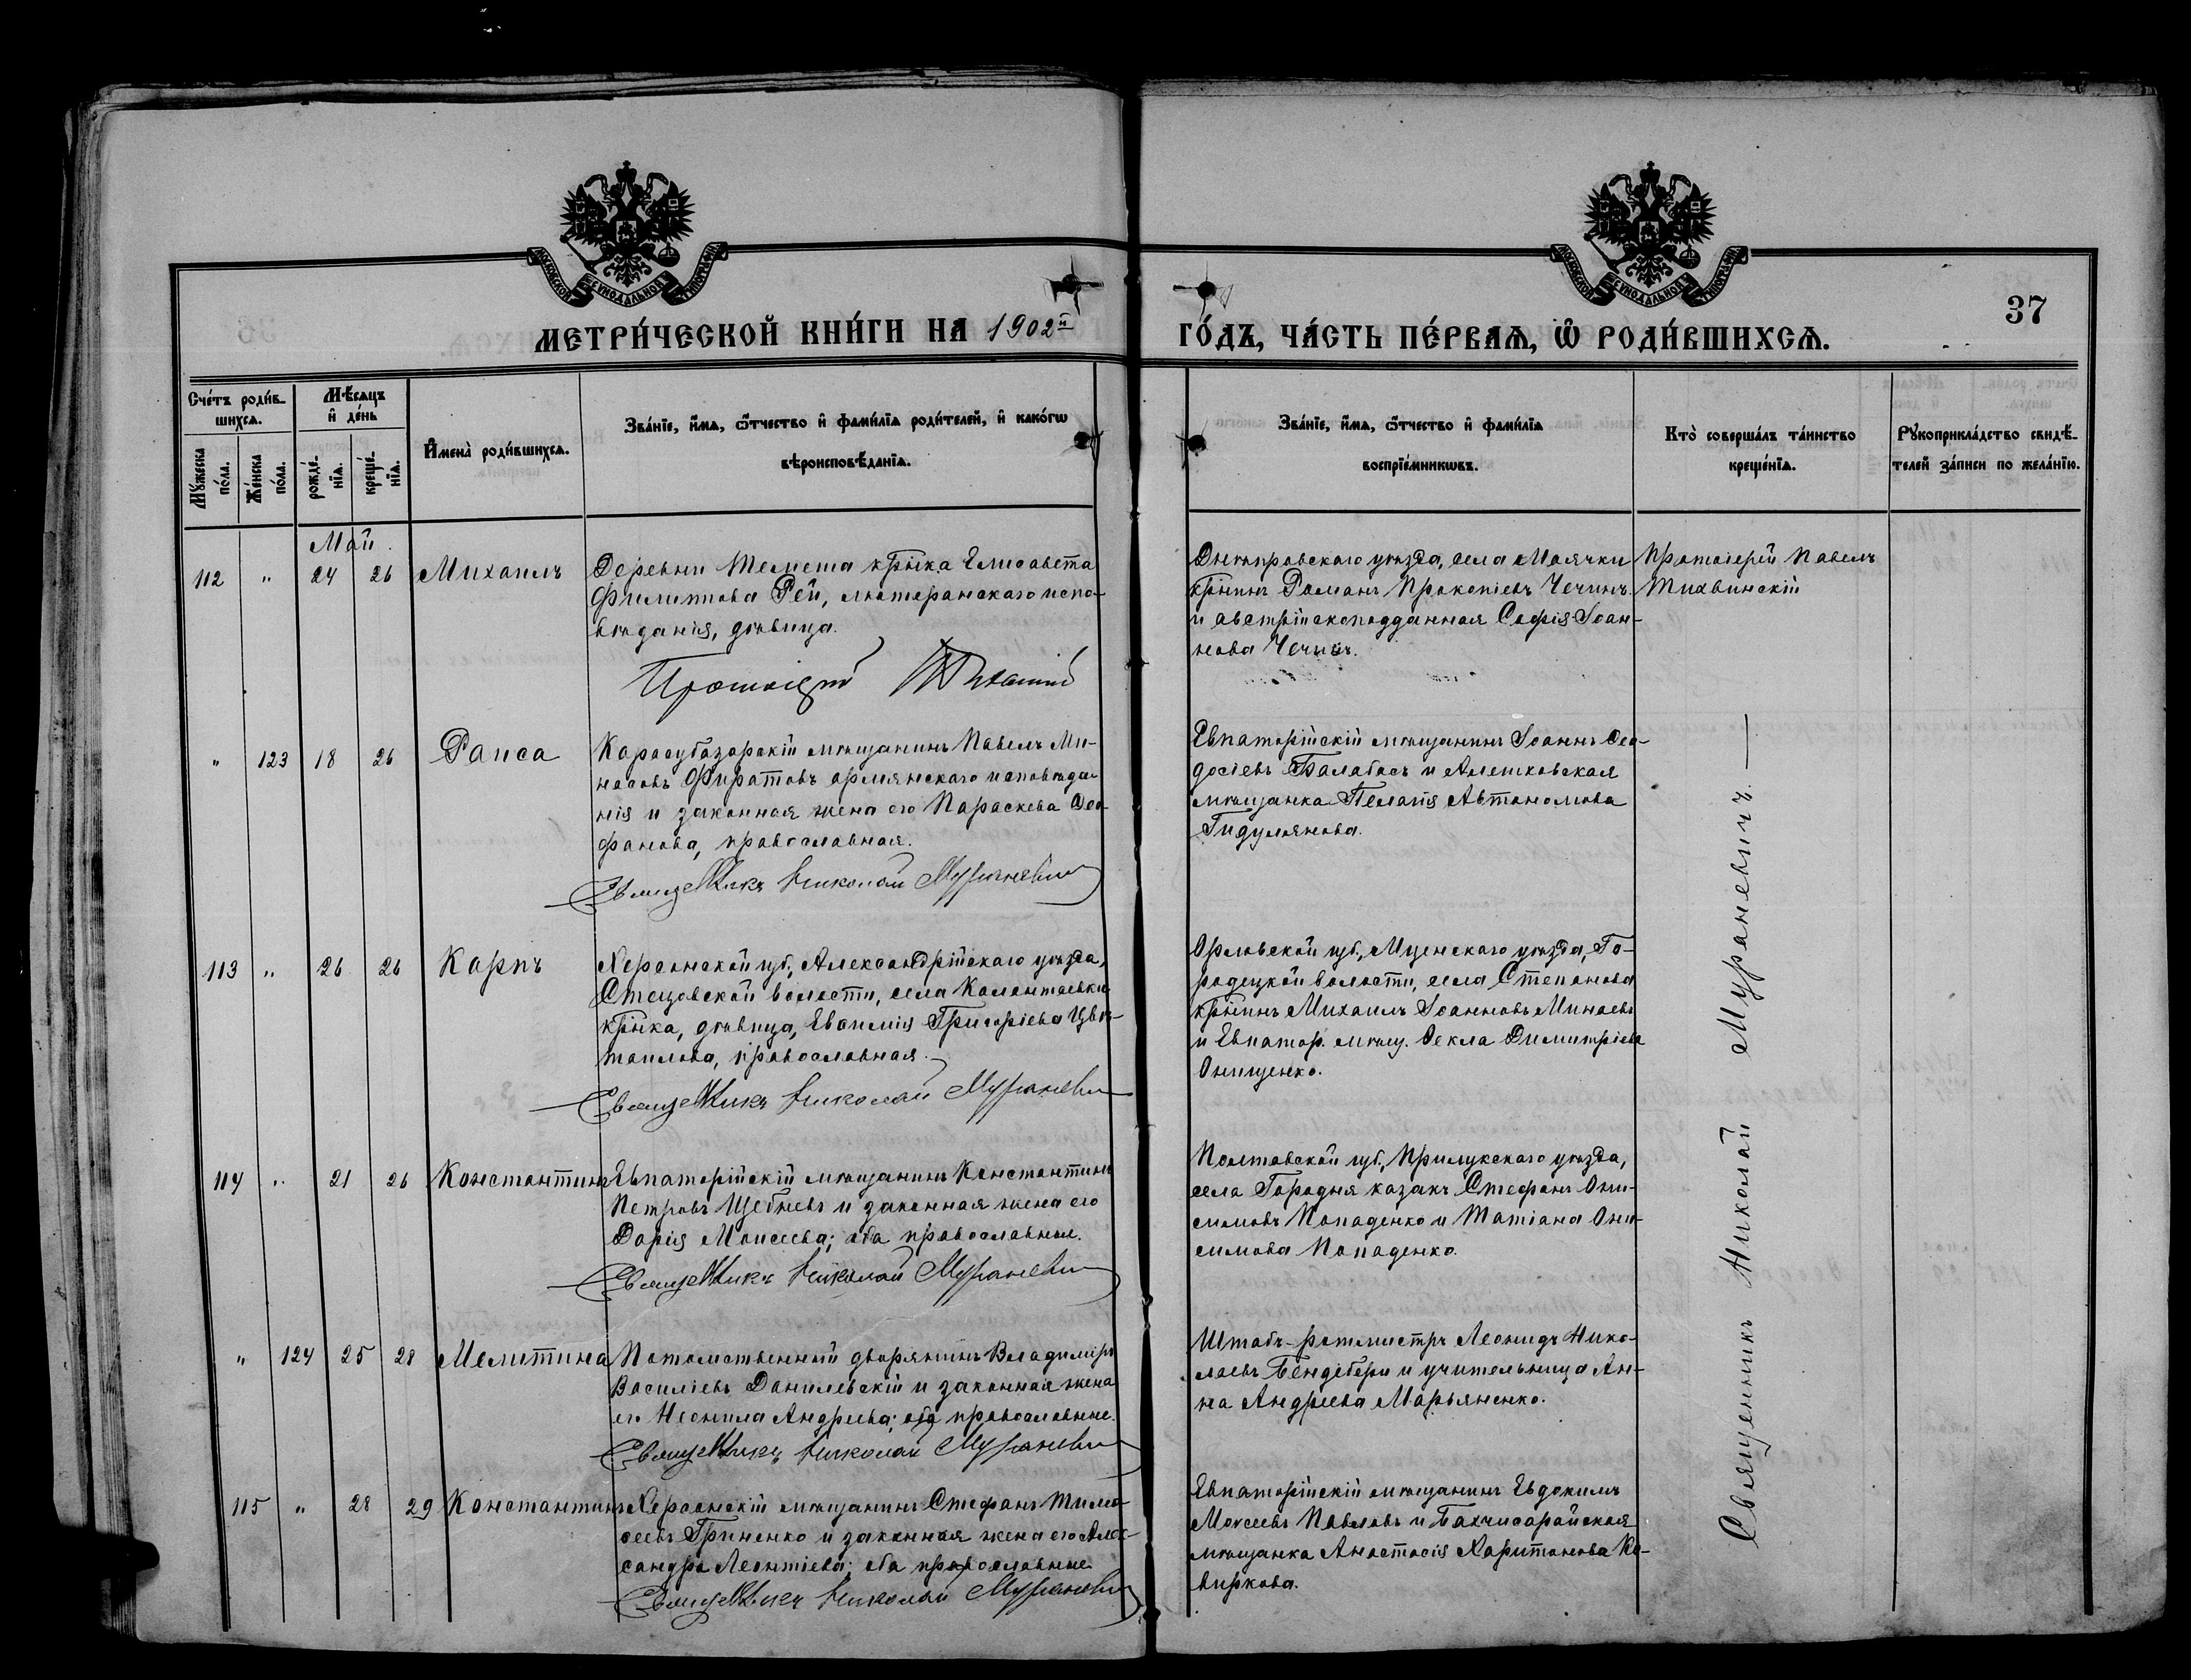 МОСКОВСКОЙ СѴНОДАЛЬНОЙ ТИПОГРАФІИ
МОСКОВСКОЙ СѴНОДАЛЬНОЙ ТИПОГРАФІИ
37
МЕТРИ́ЧЕСКОЙ КНИ́ГИ НА 1902й
ГО́ДЪ, ЧА́СТЬ ПЕ́РВАѦ, Ѡ҆ РОДИ́ВШИХСѦ.
Сче́тъ роди́в-
шихсѧ.
Мѣ́сѧцъ
и҆ де́нь
Мꙋ́жеска
по́ла.
Же́нска
по́ла.
рожде́-
нїѧ.
креще́-
нїѧ.
И҆мена̀ роди́вшихсѧ.
Зва́нїе, и҆́мѧ, ѻ҆́тчество и҆ фами́лїѧ роди́телей, и҆ како́гѡ
вѣроисповѣ́данїѧ.
Зва́нїе, и҆́мѧ, ѻ҆́тчество и҆ фами́лїѧ
воспрїе́мникѡвъ.
Кто̀ соверша́лъ та́инство
креще́нїѧ.
Рꙋкоприкла́дство свидѣ́-
телей за́писи по жела́нїю.
Май.
112 " 24 26 Михаилъ
Деревни Темеша кр̃нка Елисавета
Филиппова Рей, лютеранскаго испо-
вѣданія, дѣвица.
Протоіерей
Днѣпровскаго уѣзда, села Маячки
кр̃нинъ Романъ Прокопіевъ Чечинъ
и австрійскоподданная Софія Іоан-
нова Чечинъ.
Протоіерей Павелъ
Тихвинскій
" 123 18 26 Раиса
Карасубазарскій мѣщанинъ Павелъ Ми-
насовъ Фиратовъ армянскаго исповѣда-
нія и законная жена его Параскева Ѳео-
фанова, православная.
Священникъ Николай Мураневич
Евпаторійскій мѣщанинъ Іоаннъ Ѳео-
досіевъ Балабасъ и Алешковская
мѣщанка Пелагія Автономова
Гидулянова.
113 " 26 26 Карпъ
Херсонской губ., Александрійскаго уѣзда,
Стецовской волости, села Калантаевки
кр̃нка, дѣвица, Евѳимія Григоріева Цвѣ-
таилова, православная.
Священникъ Николай Мураневич
Орловской губ., Мценскаго уѣзда, Го-
родецкой волости, села Степанова
кр̃нинъ Михаилъ Іоанновъ Минаевъ
и Евпатор. мѣщ. Ѳекла Димитріева
Онищенко.
114 " 21 26 Константинъ
Евпаторійскій мѣщанинъ Константинъ
Петровъ Щебневъ и законная жена его
Дарія Моисеева; оба православные.
Священникъ Николай Мураневич
Полтавской губ., Прилукскаго уѣзда,
села Городня казакъ Стефанъ Они-
симовъ Попаденко и Татіана Они-
симова Попаденко.
" 124 25 28 Мелитина
Потомственный дворянинъ Владиміръ
Василіевъ Данилевскій и законная жена
его Неонила Андреева; оба православные.
Священникъ Николай Мураневич
Штабъ-ротмистръ Леонидъ Нико-
лаевъ Бендебери и учительница Ан-
на Андреева Марьяненко.
115 " 28 29 Константинъ
Херсонскій мѣщанинъ Стефанъ Тимо-
ѳеевъ Гриненко и законная жена его Алек-
сандра Леонтіева; оба православные
Священникъ Николай Мураневич
Евпаторійскій мѣщанинъ Евдокимъ
Моисеевъ Павловъ и Бахчисарайская
мѣщанка Анастасія Харитонова Ка-
виркова.
Священникъ Николай Мураневичъ.